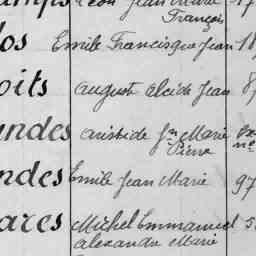 Jean
François
los Emile Francisque Jean 18
oits auguste alcide Jean 8
andes aristide Jn Marie
Pierre
ndes Emile Jean Marie 97
ares Michel Emmanuel 5
alexandre Marie